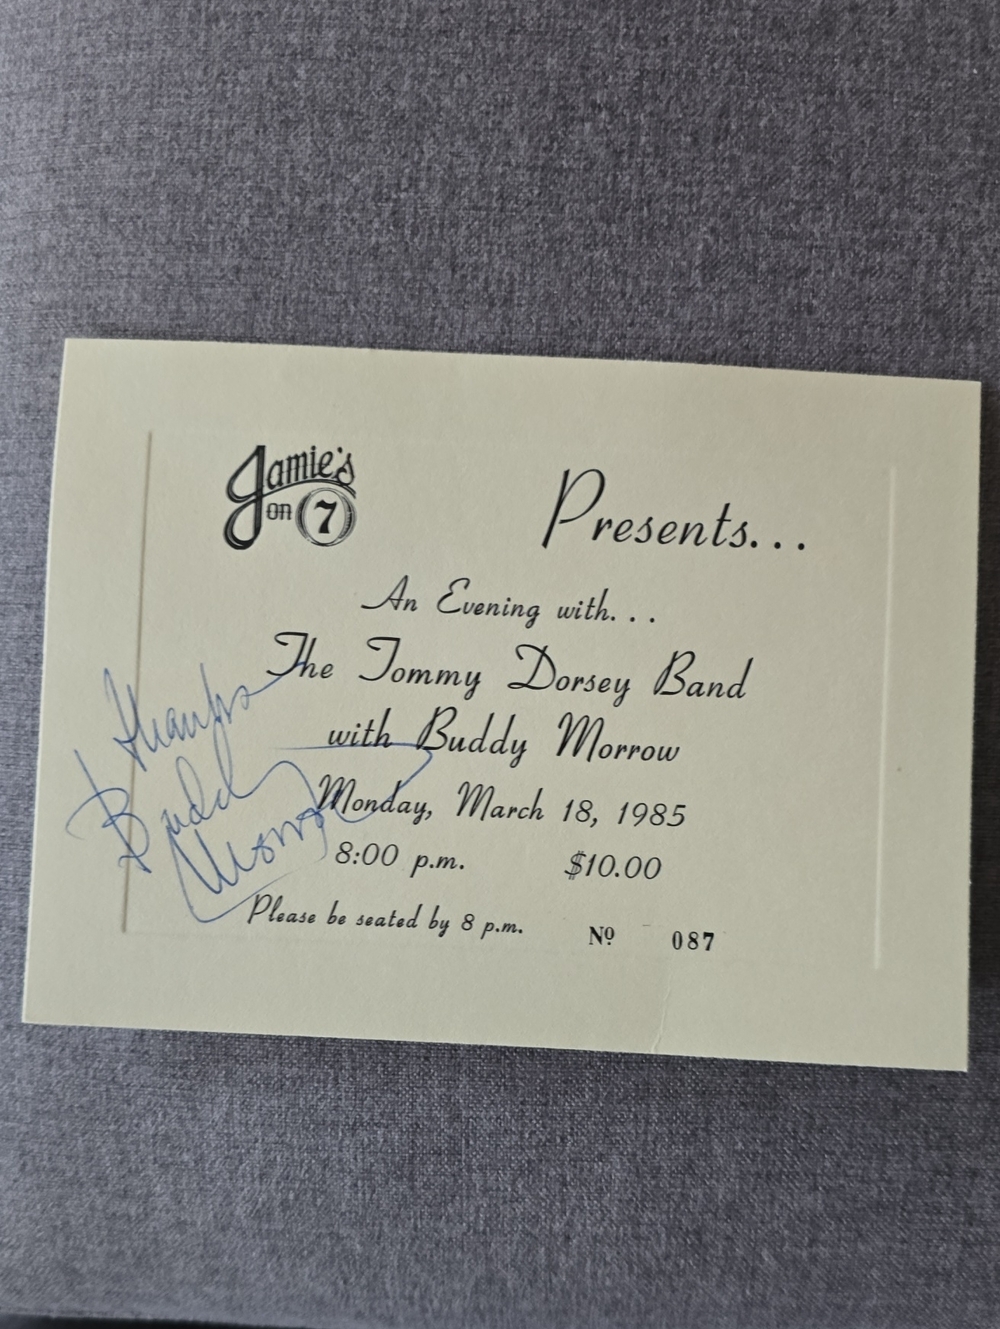 Jamie's
on 7
Presents...
An Evening with...
The Tommy Dorsey Band
with Buddy Morrow
Monday, March 18, 1985
8:00 p.m. $10.00
Please be seated by 8 p.m. Nº 087
Thanks
Buddy
Morrow